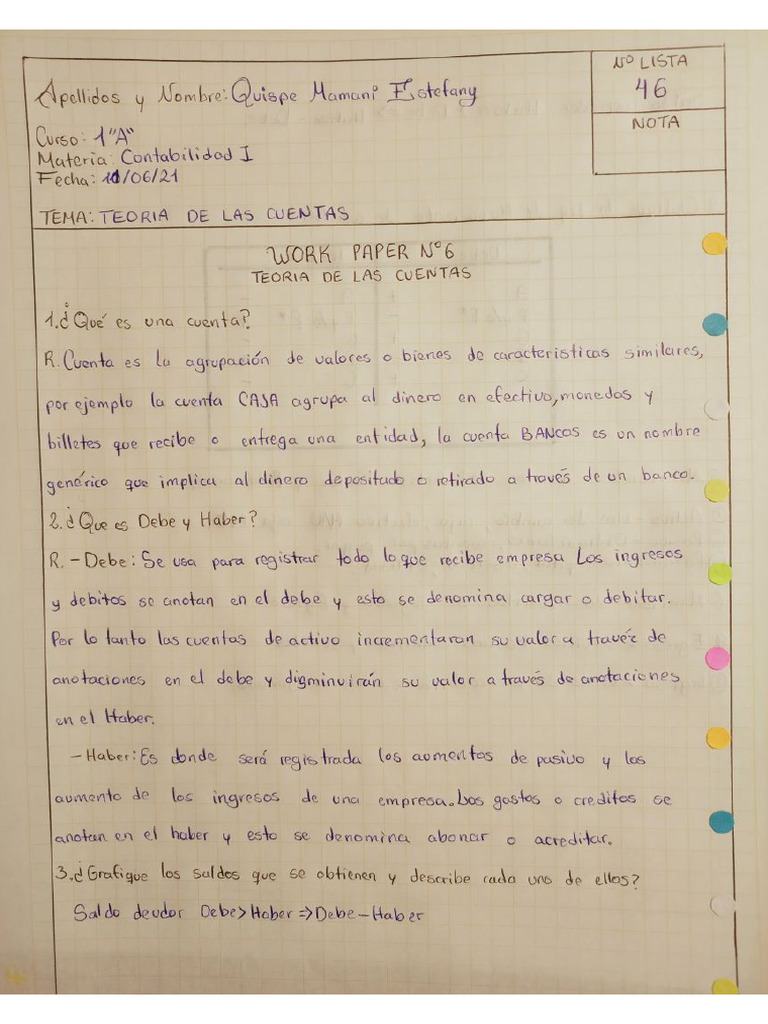 Apellidos y Nombre: Quispe Mamani Estefany
Nº LISTA
46
NOTA
Curso: 1"A"
Materia: Contabilidad I
Fecha: 11/06/21
TEMA: TEORIA DE LAS CUENTAS
WORK PAPER Nº6
TEORIA DE LAS CUENTAS
1.¿Qué es una cuenta?
R. Cuenta es la agrupación de valores o bienes de caracteristicas similares,
por ejemplo la cuenta CAJA agrupa al dinero en efectivo, monedas y
billetes que recibe o entrega una entidad, la cuenta BANCOS es un nombre
genérico que implica al dinero depositado o retirado a través de un banco.
2.¿Que es Debe y Haber?
R. - Debe: Se usa para registrar todo lo que recibe empresa Los ingresos
y debitos se anotan en el debe y esto se denomina cargar o debitar.
Por lo tanto las cuentas de activo incrementaran su valor a travéz de
anotaciones en el debe y digminuirán su valor a através de anotaciones
en el Haber.
- Haber: Es donde será registrada los aumentos de pasivo y los
aumento de los ingresos de una empresa. Los gastos o creditos se
anotan en el haber y esto se denomina abonar o acreditar.
3.¿Grafique los saldos que se obtienen y describe cada uno de ellos?
Saldo deudor Debe > Haber => Debe - Haber